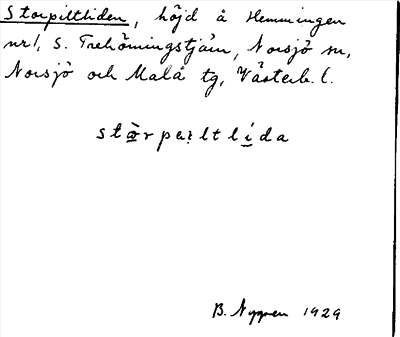 Storpiltliden, höjd å Hemmingen
nr 1, S. Trehörningstjärn, Norsjö sn,
Norsjö och Malå tg, Västerb. l.
stɷ̀rpaɩltlìda
B. Nygren 1929